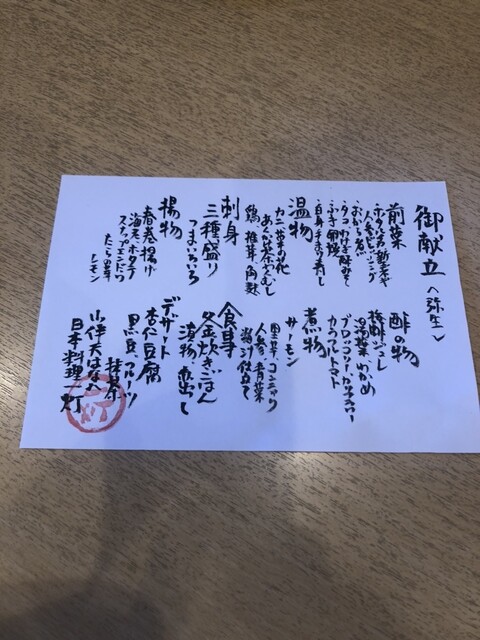 御献立〈弥生〉
前菜
ホタルイカ 新玉や
人参ドレッシング
・おから煮
・タコ わけぎ酢みそ
・ふき 卵焼
・白身 手まり寿し
温物
カニ 菜の花
あんかけ茶わんむし
鶏、椎茸、角麩
刺身
三種盛り
つまいろいろ
揚物
春巻 揚げ
海老、ホタテ
スナップエンドウ
たらの芽
レモン
酢の物
桜酢ジュレ
湯葉、わかめ
ブロッコリー カリフラワー
カラフルトマト
煮物
サーモン
里芋、コンニャク
人参、青菜
粕汁仕立て
食事
釜炊きごはん
漬物、赤出し
デザート
杏仁豆腐
黒豆、フルーツ
抹茶
日本料理 一灯